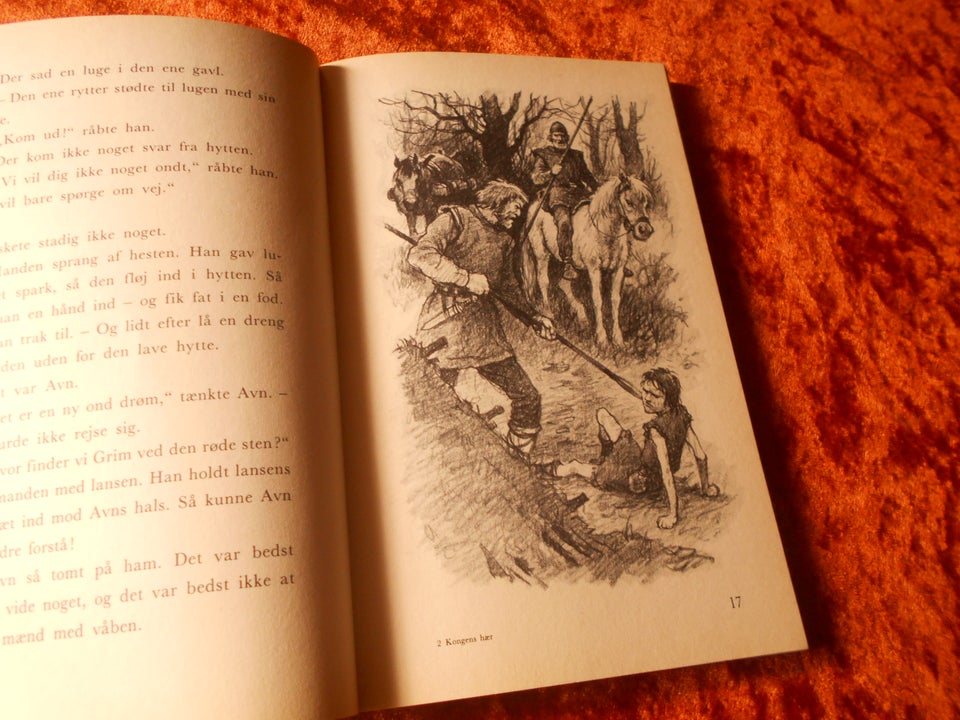 Der sad en luge i den ene gavl.
– Den ene rytter stødte til lugen med sin
e.
„Kom ud!“ råbte han.
Der kom ikke noget svar fra hytten.
Vi vil dig ikke noget ondt,“ råbte han.
vil bare spørge om vej.“
skete stadig ikke noget.
Manden sprang af hesten. Han gav lu-
et spark, så den fløj ind i hytten. Så
han en hånd ind – og fik fat i en fod.
an trak til. – Og lidt efter lå en dreng
den uden for den lave hytte.
t var Avn.
et er en ny ond drøm,“ tænkte Avn. –
urde ikke rejse sig.
vor finder vi Grim ved den røde sten?“
manden med lansen. Han holdt lansens
æt ind mod Avns hals. Så kunne Avn
dre forstå!
vn så tomt på ham. Det var bedst
vide noget, og det var bedst ikke at
mænd med våben.
17
2 Kongens hær